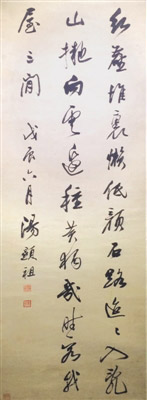 紅塵堆裏懶低顏石路迢〻入亂
山擬向雲邊種黃獨幾時容我
屋三間 戊辰六月 湯顯祖